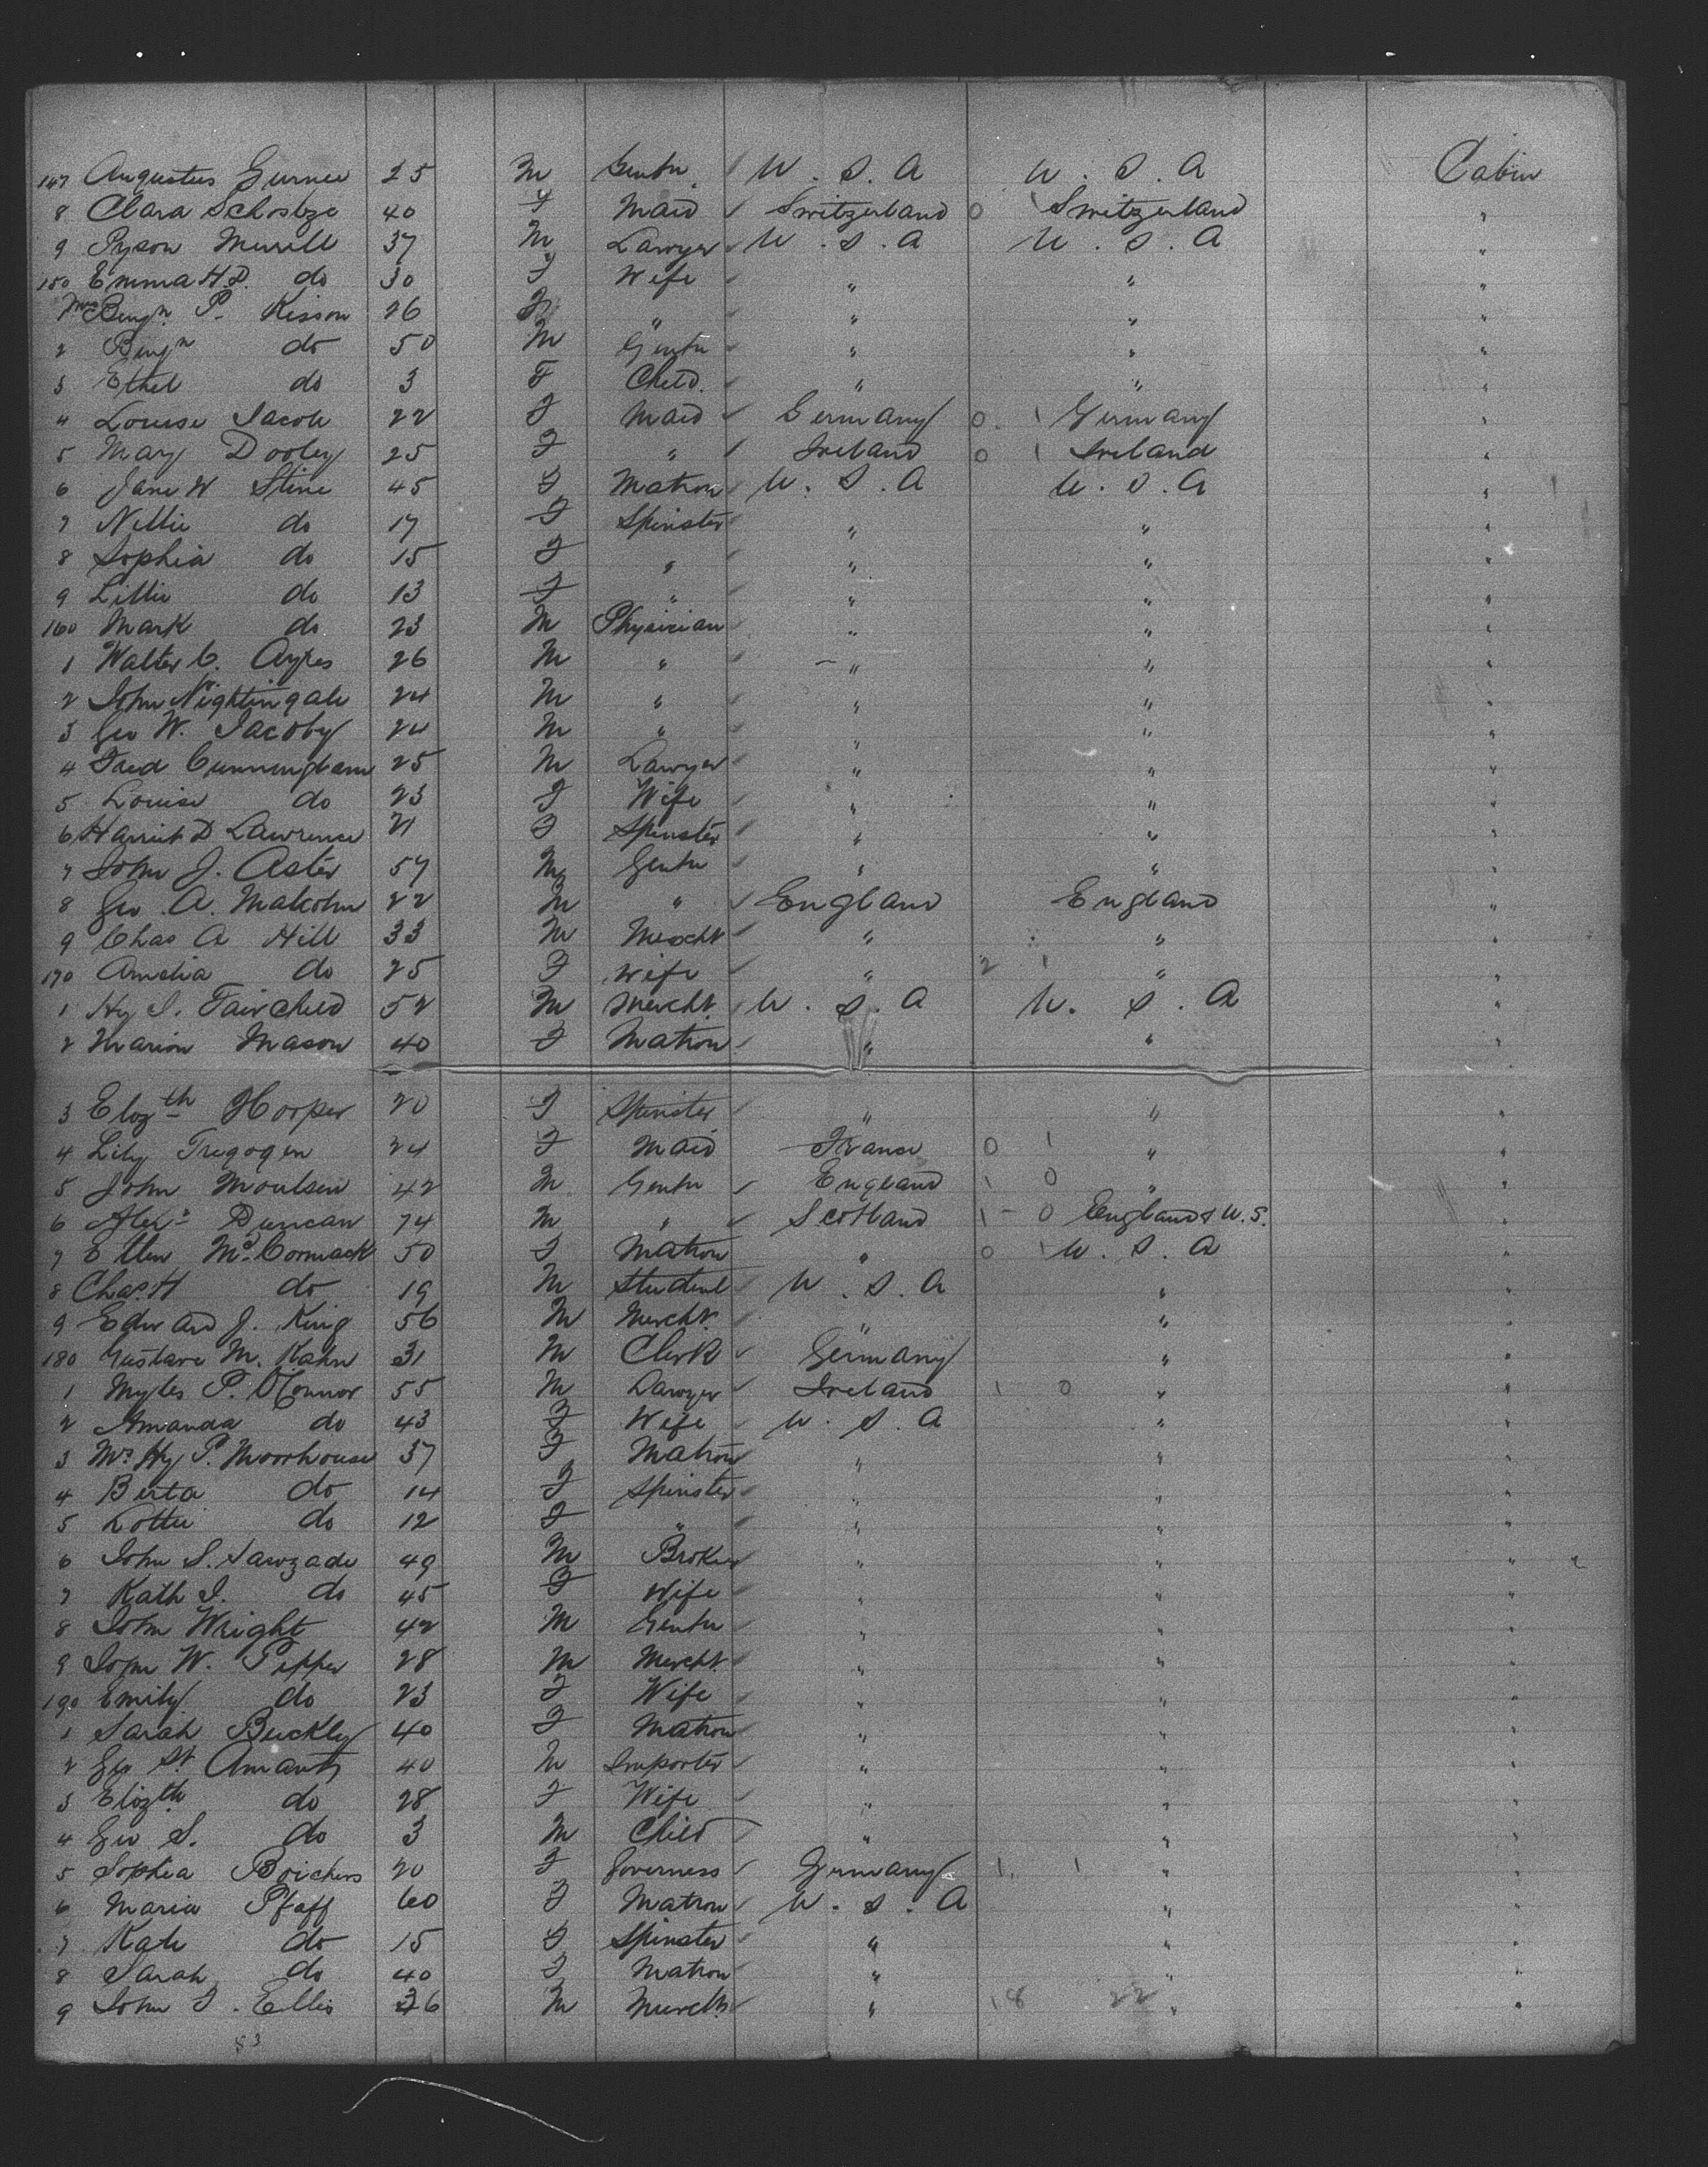 147 Augustus Gurnee 25 M Gentn U. S. A U. S. A Cabin
8 Clara 40 F Maid Switzerland 0 1 Switzerland "
9 Pyson Merrill 37 M Lawyer U. S. A U. S. A "
150 Emma H.D. do 30 F Wife " " "
Mrs Benjn P. Kisson 26 F " " " "
2 Benjn do 50 M Gentn " " "
3 Ethel do 3 F Child. " " "
4 Louise Jacob 22 F Maid Germany 0. 1 Germany "
5 Mary Dooley 25 F " Ireland 0 1 Ireland "
6 Jane W Stine 45 F Matron U. S. A U. S. A "
7 Nellie do 17 F Spinster " " "
8 Sophia do 15 F " " " "
9 Lillie do 13 F " " " "
160 Mark do 23 M Physician " " "
1 Walter C. Ayres 26 M " " " "
2 John Nightingale 24 M " " " "
3 Geo W. Jacoby 24 M " " " "
4 Fred Cunningham 25 M Lawyer " " "
5 Louise do 23 F Wife " " "
6 Harriet D Lawrence 21 F Spinster " " "
7 John J. Aster 57 M Gentn " " "
8 Geo. A. Malcolm 22 M " England England "
9 Chas A Hill 33 M Mercht " " "
170 Amelia do 25 F Wife " 2 1 " "
1 Hy S. Fairchild 52 M Mercht. U. S. A U. S. A "
2 Marion Mason 40 F Matron " " "
3 Elizth Hooper 20 F Spinster " " "
4 Lily Tregogen 24 F Maid France 0 1 " "
5 John Moulsen 42 M Gentn England 1 0 " "
6 Alexr Duncan 74 M " Scotland 1 - 0 England & U.S. "
7 Ellen McCormack 50 F Matron " 0 1 U. S. A "
8 Chas. H do 19 M Student U. S. A " "
9 Edward J. King 56 M Mercht. " " "
180 Gustave M. Kahn 31 M Clerk Germany " "
1 Myles P. O'Connor 55 M Lawyer Ireland 1 0 " "
2 Amanda do 43 F Wife U. S. A " "
3 Mrs Hy P. Moorhouse 37 F Matron " " "
4 Berta do 14 F Spinster " " "
5 Lottie do 12 F " " " "
6 John S. 49 M Broker " " "
7 Kath I. do 45 F Wife " " "
8 John Wright 42 M Gentn " " "
9 John W. Pepper 28 M Mercht. " " "
190 Emily do 23 F Wife " " "
1 Sarah Buckley 40 F Matron " " "
2 Geo St Amants 40 M Importer " " "
3 Elizth do 28 F Wife " " "
4 Geo S. do 3 M Child " " "
5 Sophia Boichers 20 F Governess Germany 1. 1 " "
6 Maria Pfaff 60 F Matron U. S. A " "
7 Kate do 15 F Spinster " " "
8 Sarah do 40 F Matron " " "
9 John F. Ellis 36 M Mercht. " 18 22 " "
53